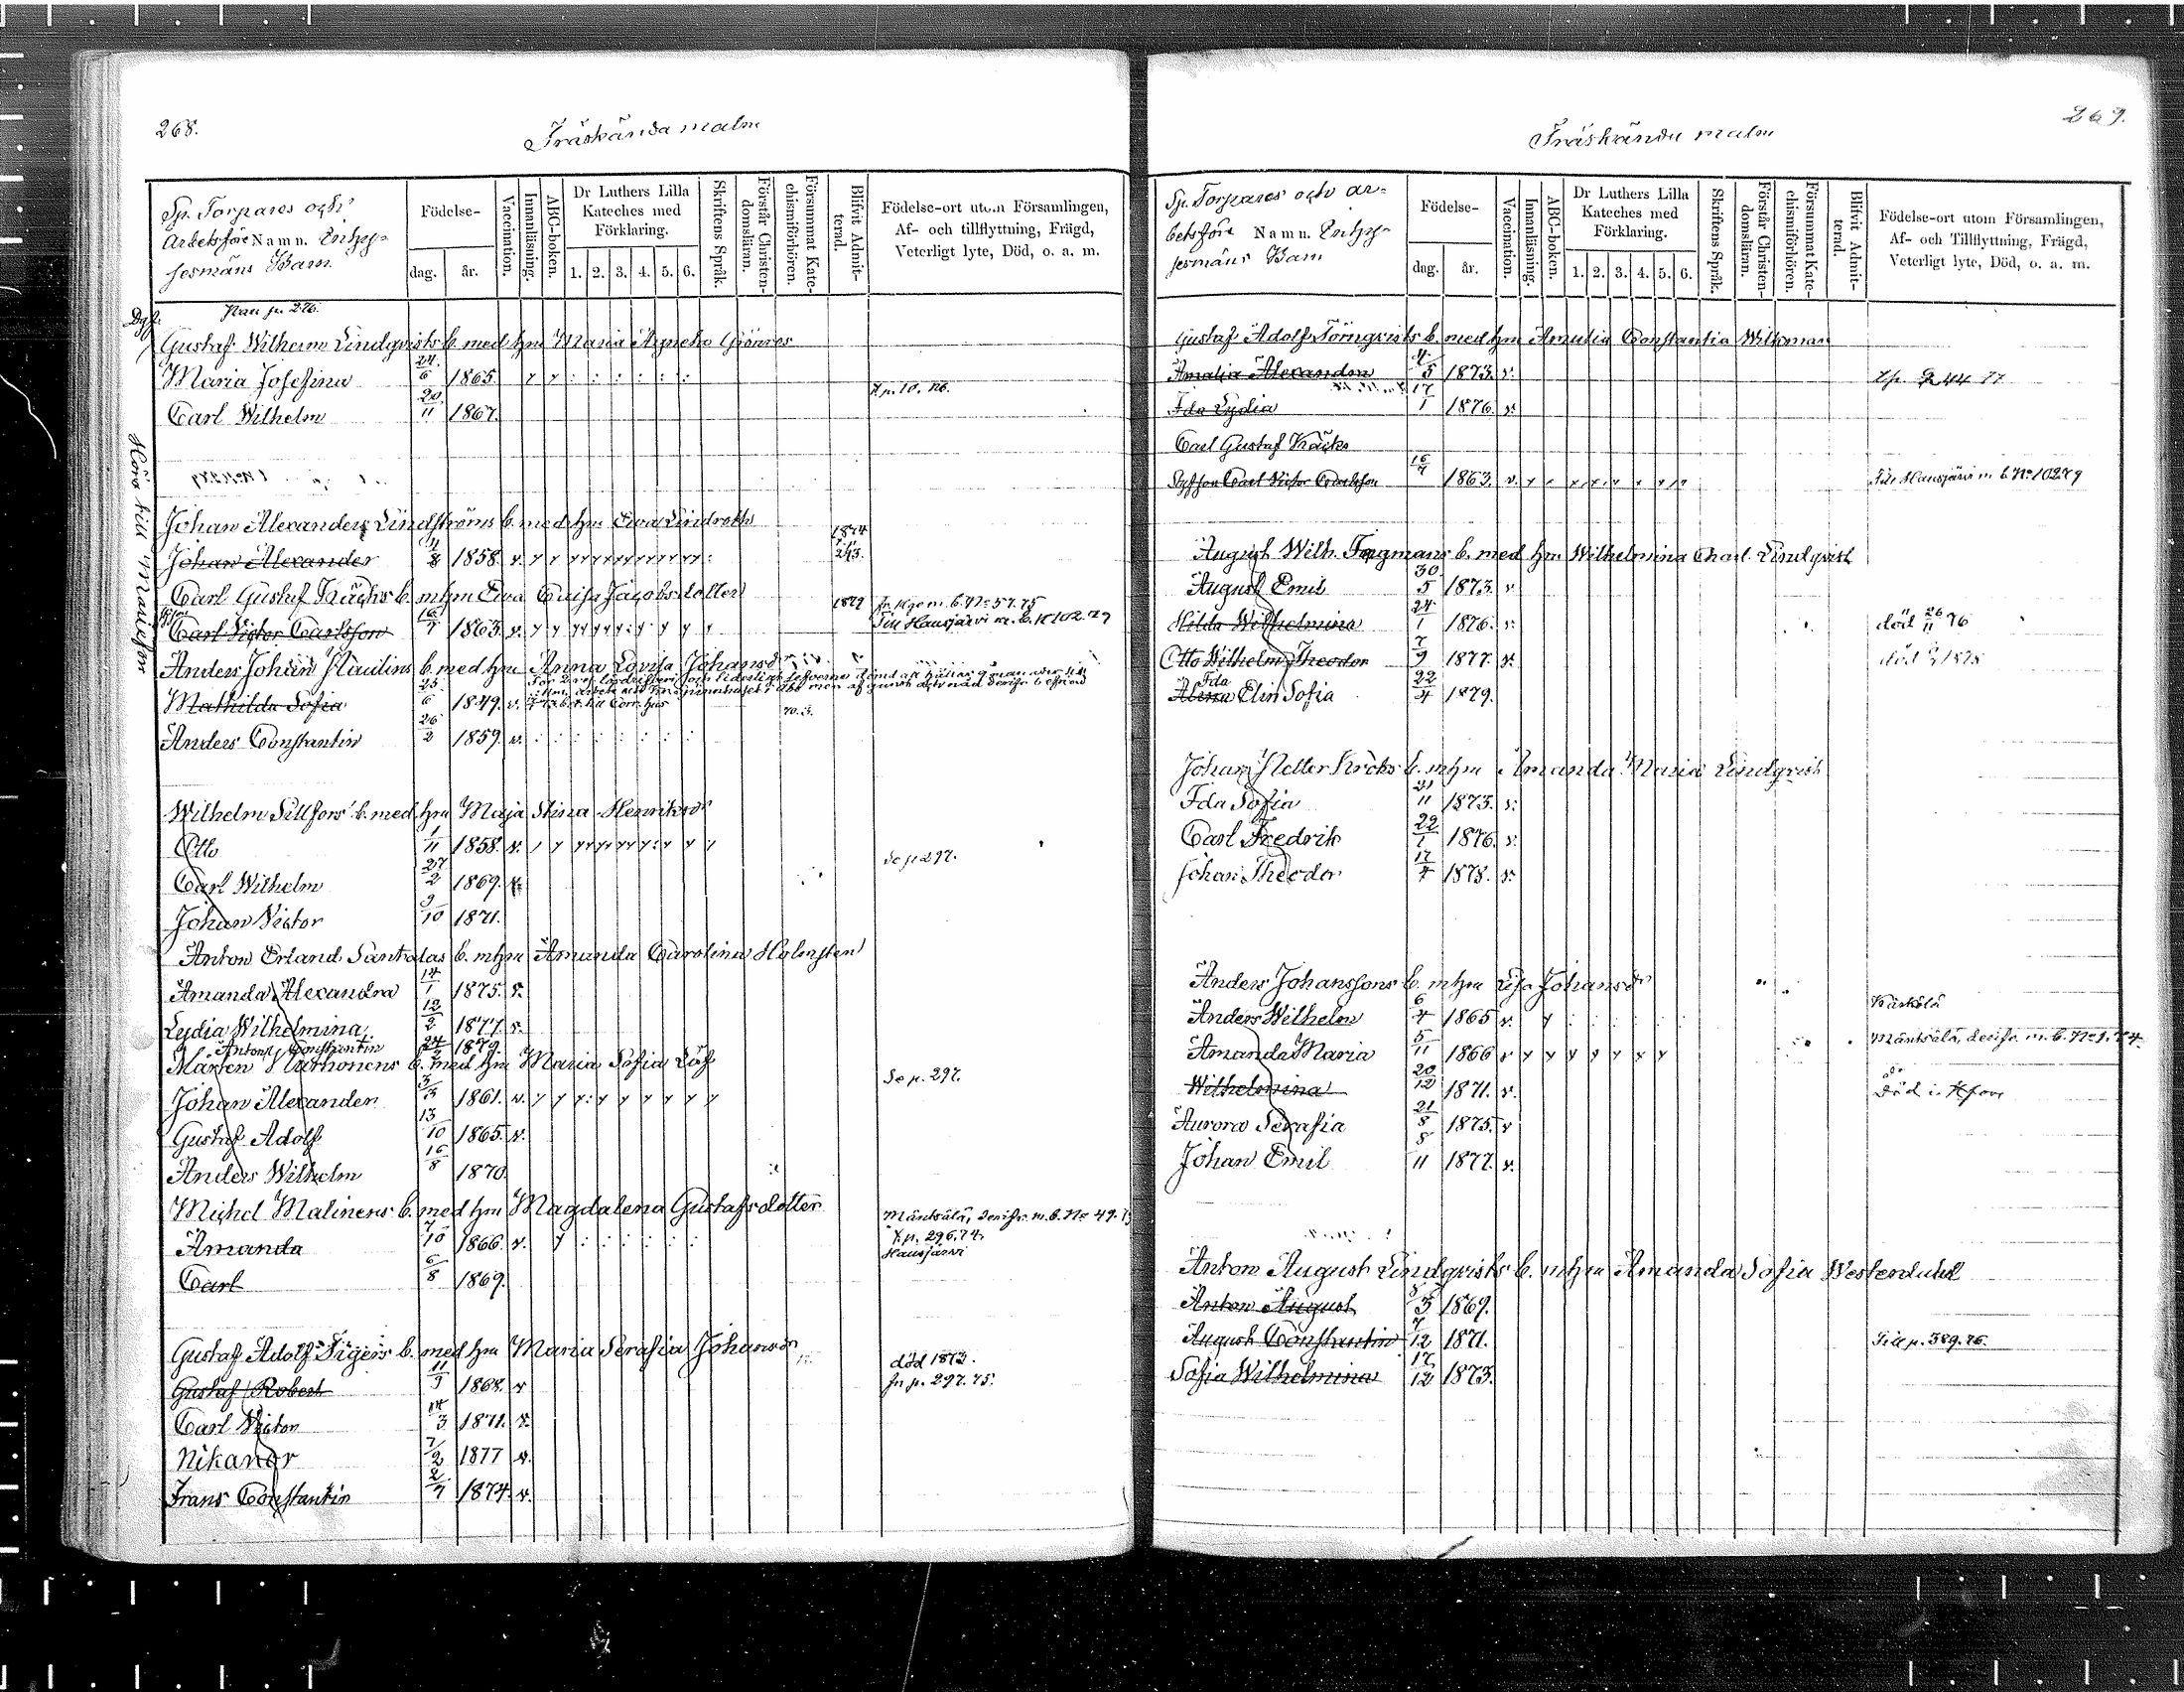 268.
Träskända malm
Sp. Torpares och
arbetsföre Namn. Enhys-
sesmäns Barn.
Födelse-
dag.
år.
Vaccination.
Innanläsning.
ABC-boken.
Dr Luthers Lilla
Kateches med
Förklaring.
1. 2. 3. 4. 5. 6.
Skriftens Språk.
Förstår Christen-
domsläran.
Försummat Kate-
chismiförhören.
Blifvit Admit-
terad.
Födelse-ort utom Församlingen,
Af- och tillflyttning, Frägd,
Veterligt lyte, Död, o. a. m.
Gustaf Wilhelm Lindqvists b. med hm Maria
Maria Josefina 24/6 1865
Carl Wilhelm 20/11 1867.
Johan Alexander Lindströms b. med hm Ewa Lindroth
Johan Alexander 11/8 1858. v. 1874
Carl Gustaf Käcks b. m hm Ewa Caisa Jacobsdotter
Carl Victor Carlsson 16/7 1863. v. 1879 Till Hausjärvi m. b. N 102.79
Anders Johan Flautins b. med hm Anna Lovisa Johansdr
Mathilda Sofia 25/6 1849. v.
Anders Constantin 26/2 1859. v.
Höra till Maisjon
Wilhelm Sillfors b. med hm Maja Stina Henriksdr
Otto 1/11 1858. v. Se p 297.
Carl Wilhelm 27/2 1869. v.
Johan Victor 9/10 1871.
Anton Erland Santalas b. m hm Amanda Carolina Holmsten
Amanda Alexandra 14/1 1875. v.
Lydia Wilhelmina 12/2 1877. v.
Anton Constantin 1879
Mårten Marhonens b. med hm Maria Sofia Löf
Johan Alexander 3/3 1861. v. Se p. 297.
Gustaf Adolf 13/10 1865. v.
Anders Wilhelm 16/8 1870.
Michel Malinens b. med hm Magdalena Gustafsdotter
Amanda 7/10 1866. v. Mäntsälä, m. b. No 49.
p. 296.74
Hausjärvi
Carl 6/8 1869.
Gustaf Adolf Sigers b. med hm Maria Serafia Johansdr
Gustaf Robert 11/9 1868. v död 1873.
Carl Victor 14/3 1871. v. fr p. 297. 75.
Nikanor 7/2 1877 v.
Frans Constantin 2/7 1874. v.
269.
Träskända malm
Sp. Torpares och ar-
betsföre Namn. Enhys-
sesmäns Barn
Födelse-
dag.
år.
Vaccination.
Innanläsning.
ABC-boken.
Dr Luthers Lilla
Kateches med
Förklaring.
1. 2. 3. 4. 5. 6.
Skriftens Språk.
Förstår Christen-
domsläran.
Försummat Kate-
chismiförhören.
Blifvit Admit-
terad.
Födelse-ort utom Församlingen,
Af- och Tillflyttning, Frägd,
Veterligt lyte, Död, o. a. m.
Gustaf Adolf Törnqvists b. med hm Amalia Constantia Wikman
Amalia Alexandra 4/5 1873. v.
Ida Lydia 17/1 1876. v.
Carl Gustaf Käcks
Styfson Carl Victor Carlsson 16/7 1863. v. Till Hausjärvi m. b. No 102.79
August Wilh. Tagmans b. med hm Wilhelmina Charl. Lindqvist
August Emil 30/5 1873. v
Hilda Wilhelmina 24/1 1876. v. död 26/11 76
Otto Wilhelm Theodor 7/9 1877. v. död 1878
Ida Elin Sofia 22/4 1879.
Johan Petter Kröks b. m hm Amanda Maria Lindqvist
Ida Sofia 21/11 1873. v.
Carl Fredrik 22/1 1876. v.
Johan Theodor 17/4 1878. v.
Anders Johanssons b. m hm Lisa Johansdr
Anders Wilhelm 6/4 1865 v. Kärkölä
Amanda Maria 5/11 1866 v Mäntsälä, m. b. No 1. 74.
Wilhelmina 20/12 1871. v. Död i Hfors
Aurora Serafia 21/8 1875. v
Johan Emil 8/11 1877. v.
Anton August Lindqvists b. m hm Amanda Sofia Westerdahl
Anton August 8/3 1869.
August Constantin 7/12 1871. Till p. 389.76.
Sofia Wilhelmina 17/12 1873.